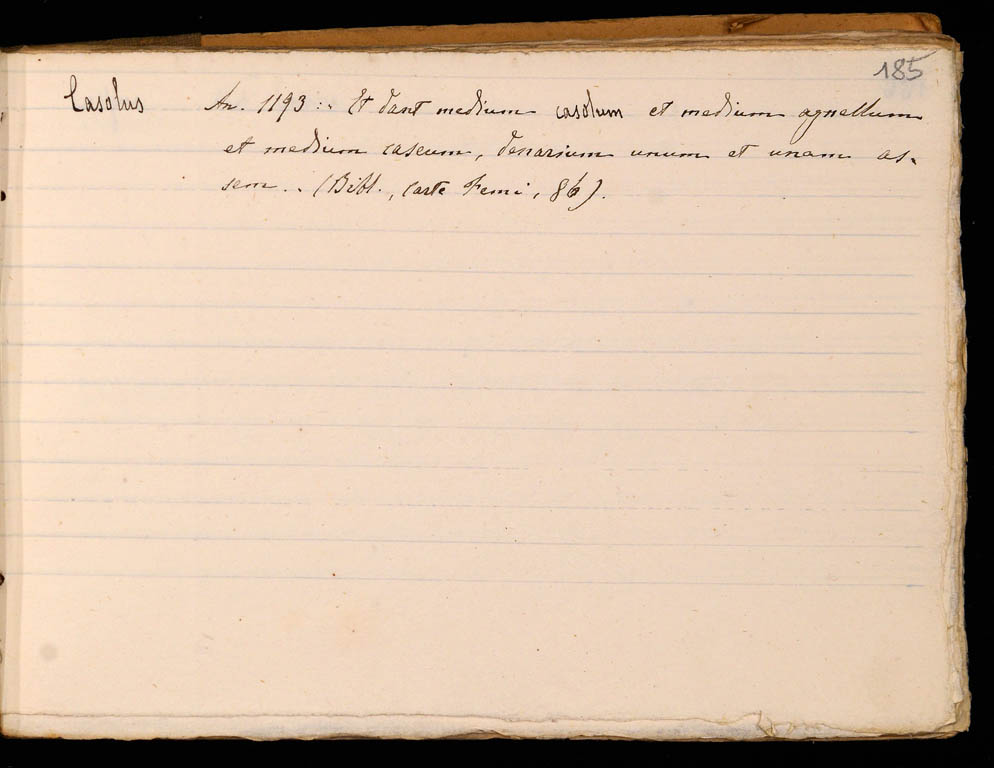 185
Casolus An. 1193: "Et dant medium casolum et medium agnellum
et medium caseum, denarium unum et unam as-
sem". (Bibl., Carte Femi, 86).